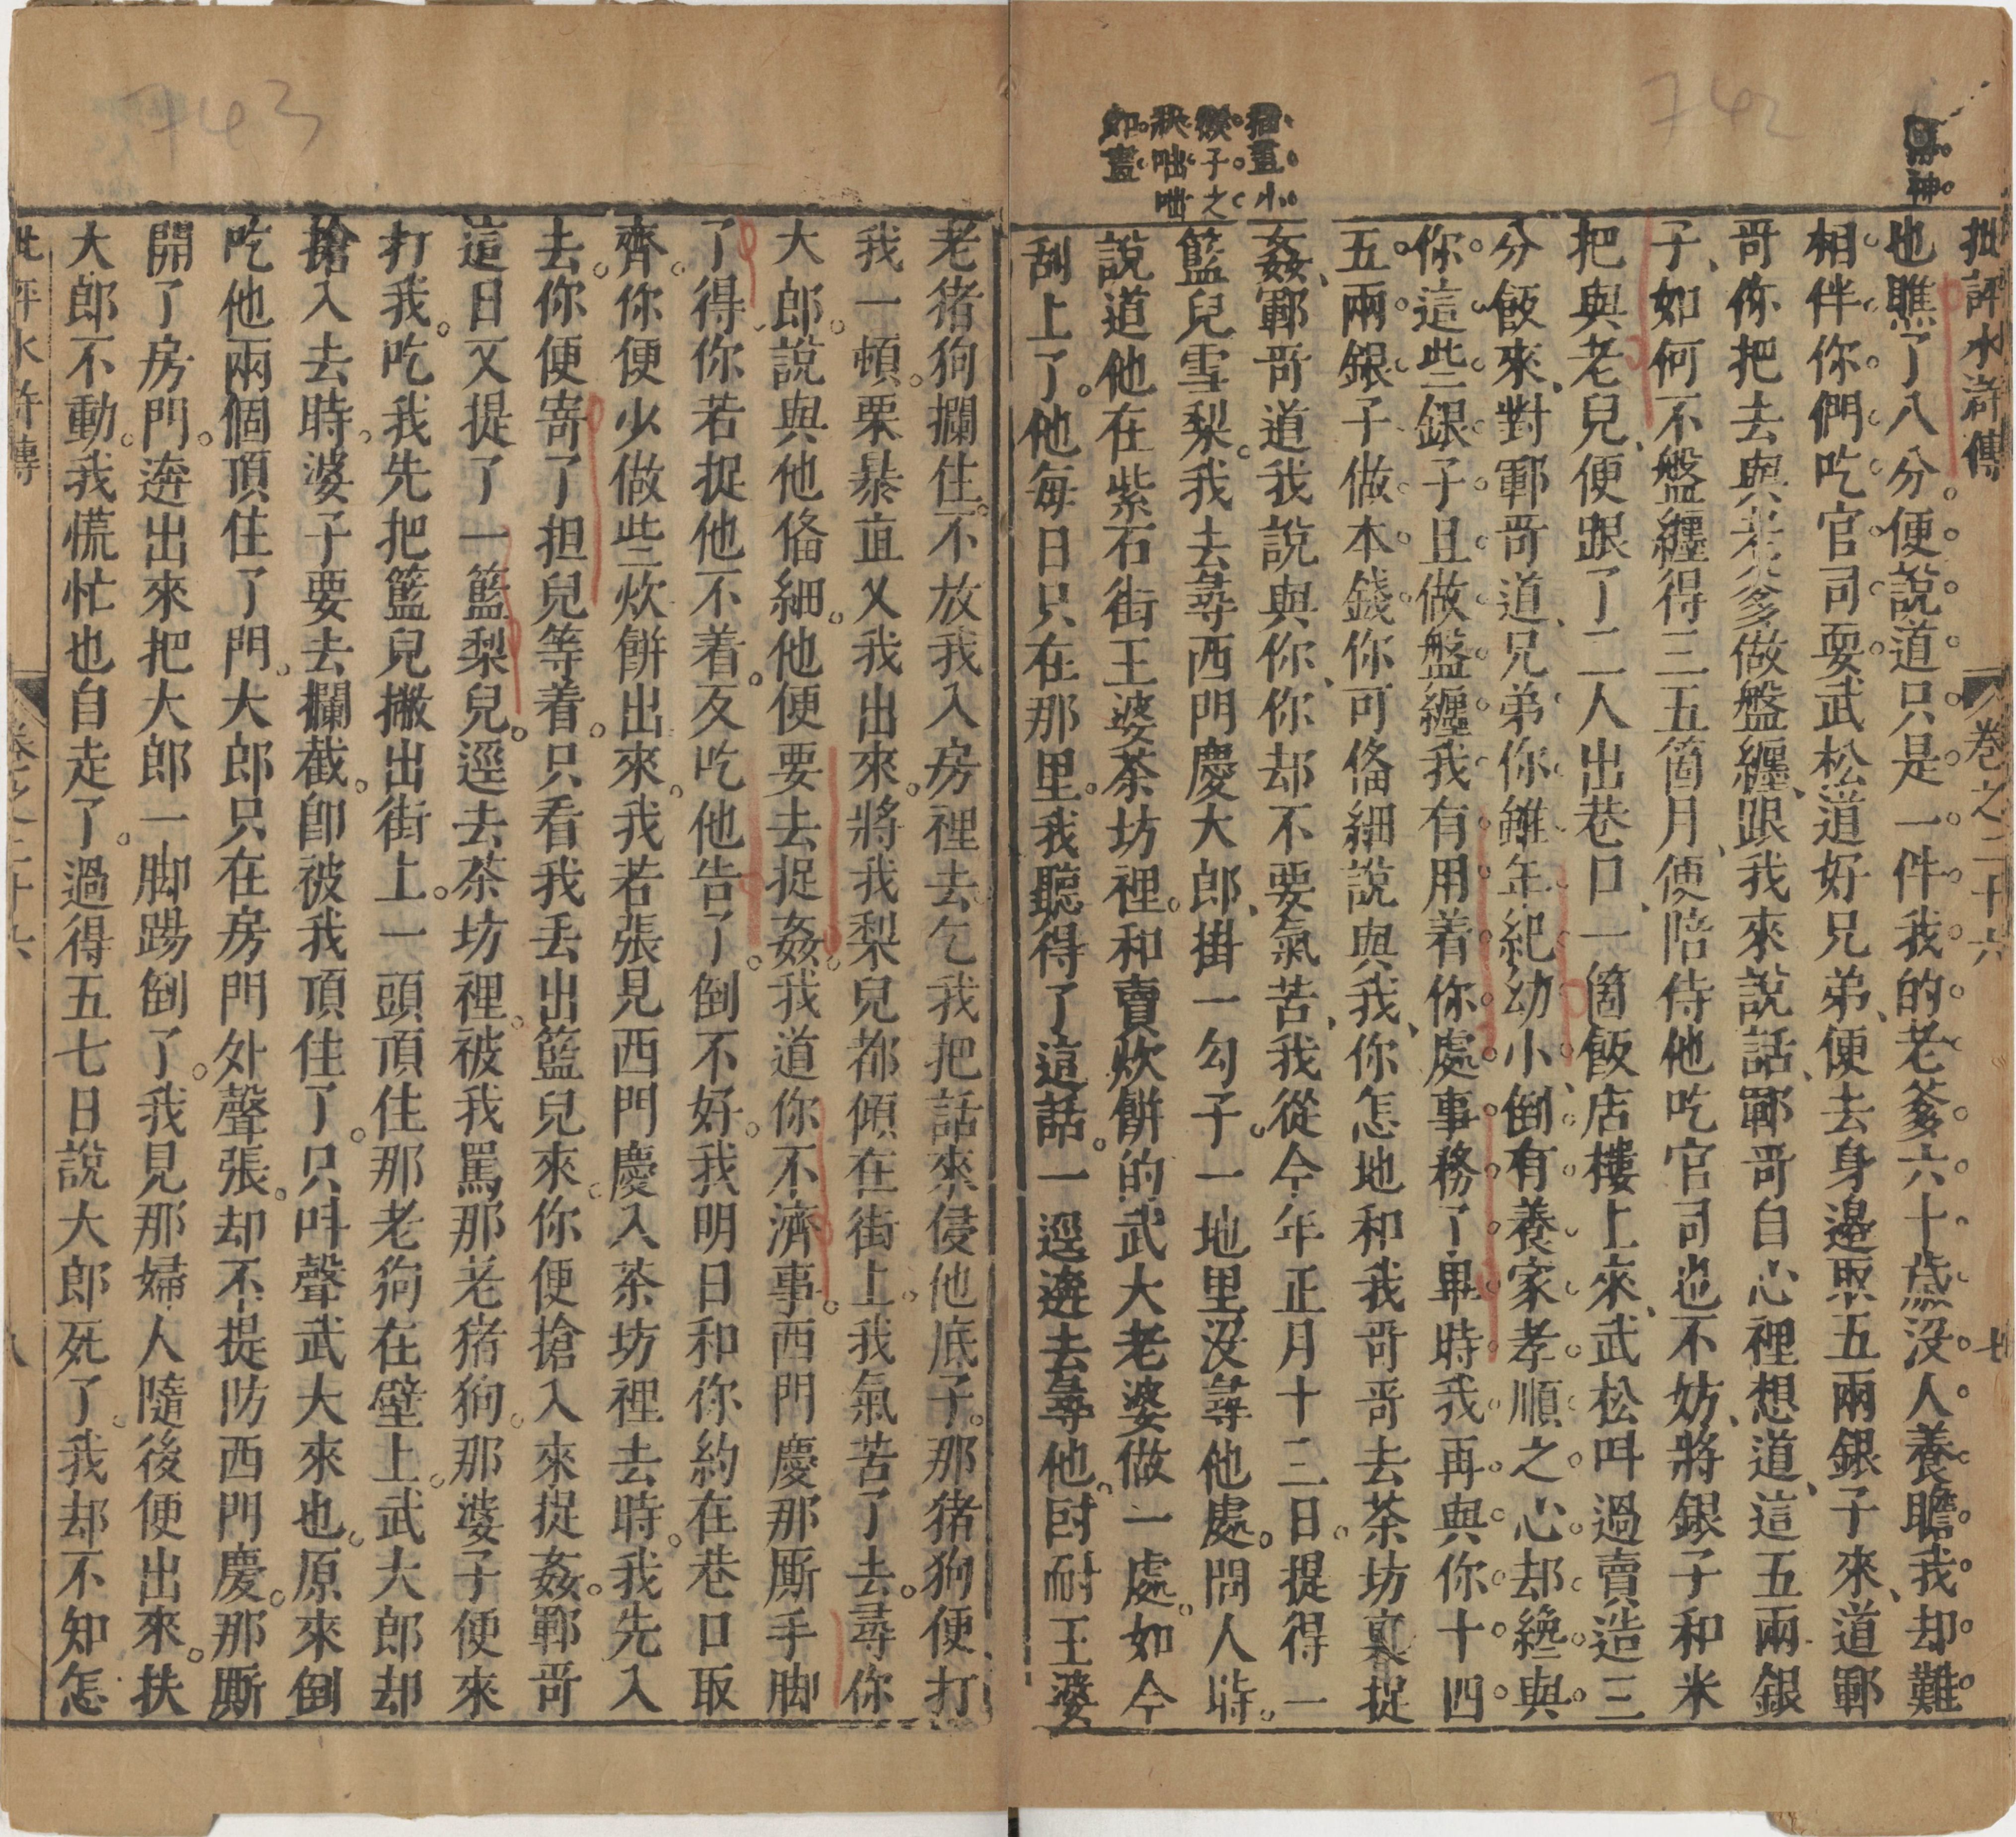 742
批評水滸傳 卷之二十六 七
傳神
也瞧了八分。便說道只是一件我的老爹六十歲沒人養贍我却難
相伴你們吃官司耍武松道好兄弟、便去身邊取五兩銀子來、道鄆
哥你把去與老爹做盤纏、跟我來說話、鄆哥自心裡想道、這五兩銀
子、如何不盤纏得三五箇月、便陪侍他吃官司也不妨、將銀子和米
把與老兒、便跟了二人出巷口、一箇飯店樓上來、武松叫過賣造三
分飯來、對鄆哥道、兄弟你雖年紀幼小、倒有養家孝順之心却纔與
你這些銀子且做盤纏我有用着你處事務了畢時我再與你十四
五兩銀子做本錢你可偹細說與我、你怎地和我哥哥去茶坊裏捉
姦、鄆哥道我說與你、你却不要氣苦、我從今年正月十三日提得一
籃兒雪梨。我去尋西門慶大郎、掛一勾子。一地里沒尋他處。問人時。
說道他在紫石街王婆茶坊裡。和賣炊餅的武大老婆做一處。如今
刮上了。他每日只在那里。我聽得了這話。一逕逩去尋他。叵耐王婆
猴子之
郎畫
743
老猪狗攔住。不放我入房裡去乞我把話來侵他底子。那猪狗便打
我一頓。栗暴直叉我出來。將我梨兒都傾在街上。我氣苦了去。尋你
大郎。說與他偹細。他便要去捉姦。我道你不濟事。西門慶那厮手脚
了得你若捉他不着。反吃他告了。倒不好。我明日和你約在巷口取
齊。你便少做些炊餅出來。我若張見西門慶入茶坊裡去時。我先入
去。你便寄了担兒等着。只看我丢出籃兒來。你便搶入來捉姦。鄆哥
這日又提了一籃梨兒。逕去茶坊裡。被我罵那老猪狗。那婆子便來
打我。吃我先把籃兒撇出街上。一頭頂住那老狗在壁上。武大郎却
搶入去時。婆子要去攔截。卽被我頂住了。只呌聲武大來也。原來倒
吃他兩個頂住了門。大郎只在房門外聲張。却不提防西門慶。那厮
開了房門。逩出來把大郎一脚踢倒了。我見那婦人隨後便出來。扶
大郎不動。我慌忙也自走了。過得五七日說大郎死了。我却不知怎
批評水滸傳 卷之二十六 八